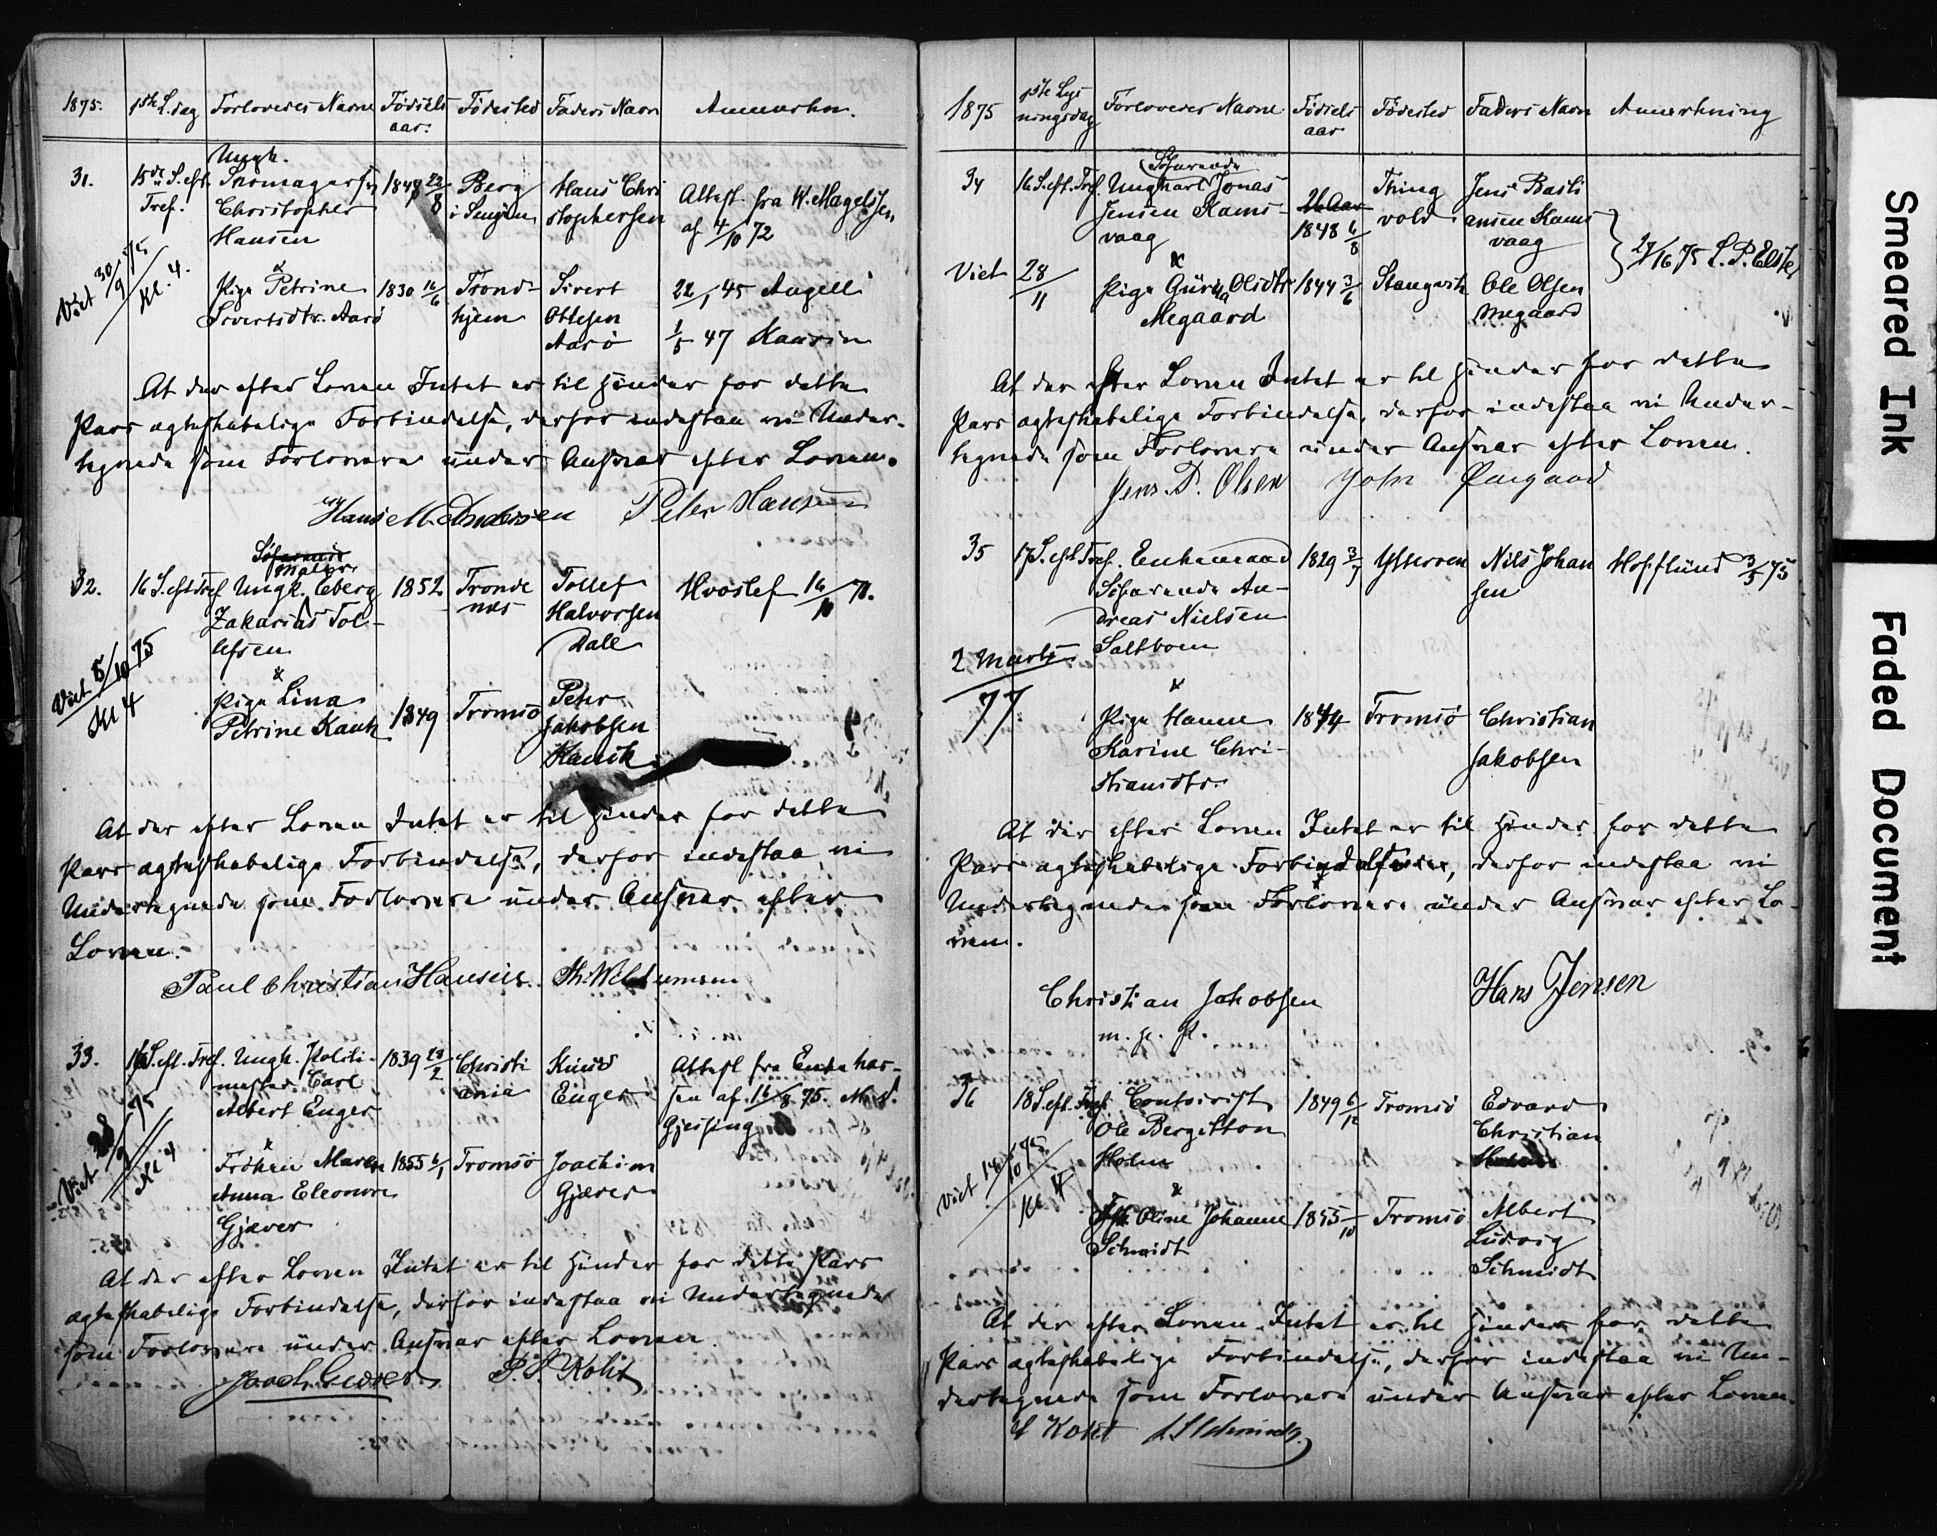 1875. 1ste L.dag Forlovedes Navne Fødsels aar: Fødested Faders Navn Anmærkn.
31. 15de S. eft. Tref. Ungk. Skomagersv Christopher Hansen 1848 23/8 Berg i Senjen Hans Christophersen Attest fra W. Magelssen af 4/10 72
Viet 30/9 75 Kl. 4.
x
Pige Petrine Sivertsdtr. Aarø 1830 16/6 Trondhjem Sivert Ottesen Aarø 22/1 45 Angell 1/5 47 Kaurin
At der efter Loven Intet er til Hinder for dette
Pars ægteskabelige Forbindelse, derfor indestaa vi Under-
tegnede som Forlovere under Ansvar efter Loven.
Hans M. Andersen Peter Hansen
32. 16 S. eft Tref Ungk. Maler Eberg Zakarias Tollefsen 1852 Trondenæs Tollef Halvorsen Dall Hvoslef 16/10 71.
Viet 5/10 75 Kl 4
x
Pige Lina Petrine Kauk 1849 Tromsø Peter Jakobsen Kauik
At der efter Loven Intet er til Hinder for dette
Pars ægteskabelige Forbindelse, derfor indestaa vi
Undertegnede som Forlovere under Ansvar efter
Loven.
Paul Christian Hansen. Th. Wilhumsen
33. 16 S. eft. Tref. Ungk. Politimester Carl Albert Enger 1839 28/2 Christiania Knud Enger Attest fra Enke har- sen af 16/8 75. N. S. Gjessing
Viet 28/9 75 Kl 4
x
Frøken Maren Anna Eleonore Gjæver 1855 6/1 Tromsø Joachim Gjæver
At der efter Loven Intet er til Hinder for dette Pars
ægteskabelige Forbindelse, derfor indestaa vi Undertegnede
som Forlovere under Ansvar efter Loven
Joach Giæver P. S. Koht
1875 1ste Lysningsdag Forlovedes Navne Fødsels aar Fødested Faders Navn Anmerkning
34 16 S. eft. Tref. Søfarende Ungkarl Jonas Jensen Ramsvaag 26 Aar 1848 6/8 Thingvold Jens Bastiansen Ramsvaag
Viet 28/11
x
Pige Guruna Olsdtr Megaard 1844 3/6 Stangvik Ole Olsen Megaard } 75 L. P. Elster
At der efter Loven Intet er til Hinder for dette
Pars ægteskabelige Forbindelse, derfor indestaa vi Under-
tegnede som Forlovere under Ansvar efter Loven.
Jens. P. Olsen John Øregaard
35 17 S. eft. Tref. Enkemand Søfarende Andreas Nielsen Saltbom 1829 3/1 Ytterøen Nils Johansen Hofflund 3/5 75
2 Marts 77
x
Pige Hanne Karine Christiansdtr. 1844 Tromsø Christian Jakobsen
At der efter Loven Intet er til Hinder for dette
Pars ægteskabelige Forbindelse, derfor indestaa vi
Undertegnede som Forlovere under Ansvar efter Lo-
ven.
Christian Jakobsen Hans Jensen
m. p. P.
36 18 S. eft. Tref. Contorist Ole Bergitton Holm 1849 6/12 Tromsø Edvard Christian Holm
Viet 14/10 75 Kl 4
x
Frk. Oline Johanne Schmidt 1855 /10 Tromsø Albert Ludvig Schmidt
At der efter Loven Intet er til Hinder for dette
Pars ægteskabelige Forbindelse, derfor indestaa vi Un-
dertegnede som Forlovere under Ansvar efter Loven.
Koht Schmidt.
Smeared Ink
Faded Document